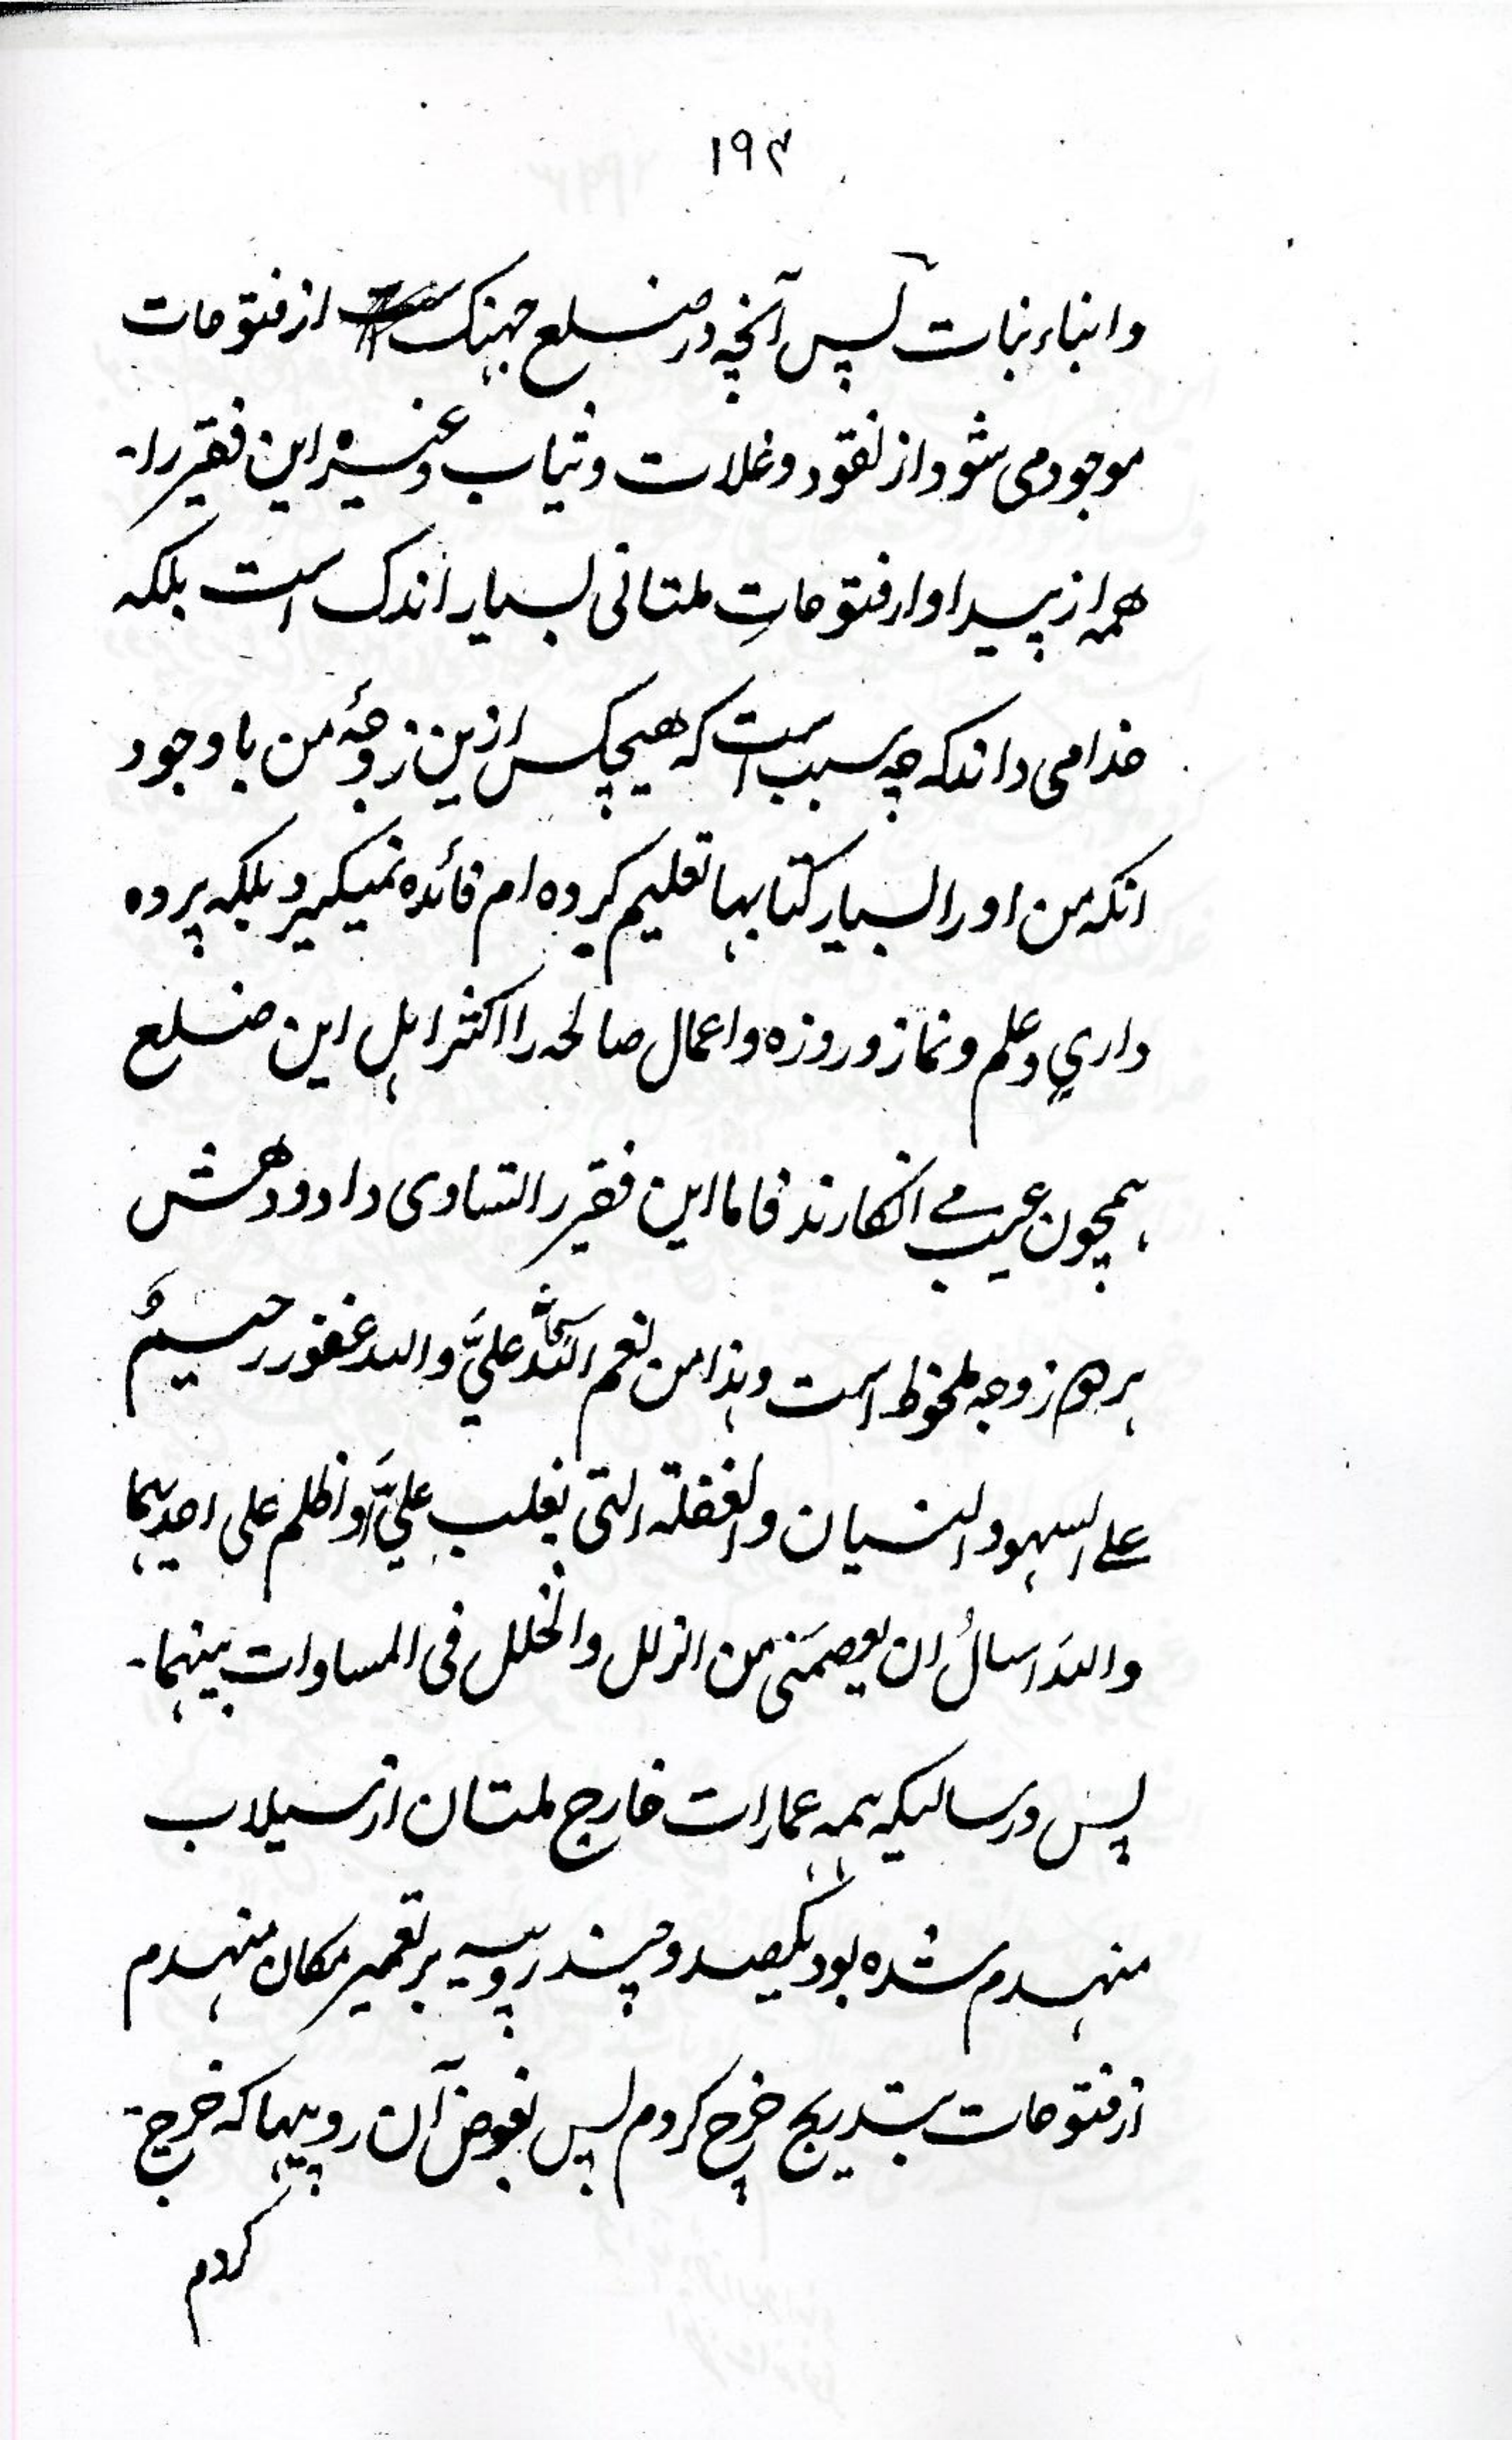 ۱۹۴
وانباء نبات پس آنچه در ضلع جهنک از فتوحات
موجود می شود از نقود و غلات و ثیاب و غیره این فقیر را۔
همه از پسر او از فتوحاتِ ملتانی بسیار اندک است بلکه
خدا می داند که چه سبب است که هیچکس ازین زوجۂ من با وجود
انکه من او را بسیار کتابها تعلیم کرده ام فائده نمیگیرد بلکه پرده
داری و علم و نماز و روزه و اعمال صالحه را اکثر اہل این ضلع
ہمچون عیب مے انگارند فاما این فقیر را تساوی داد و دهش
بر هر زوجه ملحوظ است وہذا من نعم اللہ علیَّ واللہ غفور رحیمٌ
علے السہو والنسیان والغفلة التی یغلب علیَّ او اظلم علی احدیہما
واللہَ اسالُ ان یعصمَنی من الزلل والخلل فی المساوات بینہما۔
پس در سالیکہ ہمہ عمارات خارج ملتان از سیلاب
منہدم شده بود یکصد و چند روپیہ بر تعمیر مکان منہدم
از فتوحات بتدریج خرچ کردم پس بعوض آن روپیہا که خرچ
کردم